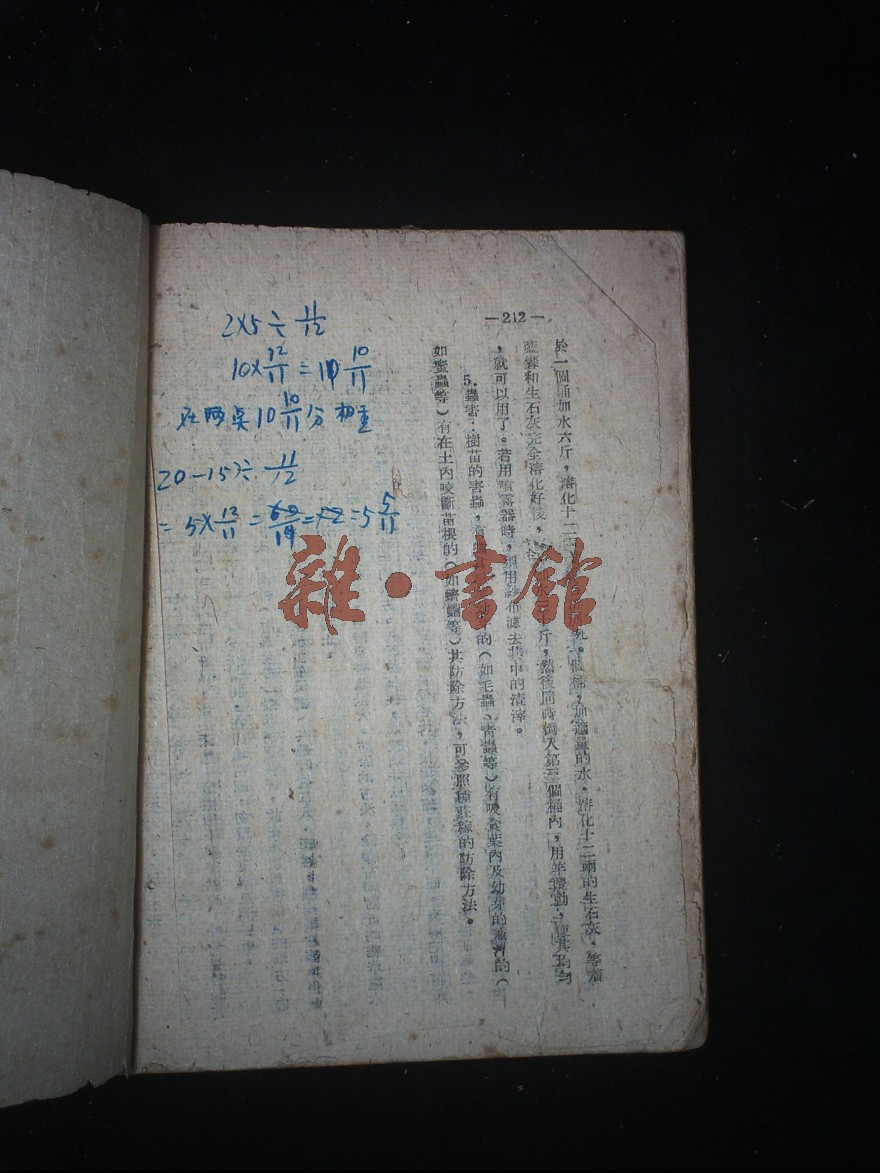 —212—
於一個桶加水六斤，溶化十二兩
個桶，加適量的水，溶化十二兩的生石灰，等
藍礬和生石灰完全溶化好後，
斤，然後同時倒入第三個桶內，用竿攪動，使其均勻
，就可以用了。若用噴霧器時，須用紗布濾去其中的渣滓。
5.蟲害：樹苗的害蟲，有
的（如毛蟲、青蟲等）有吸食葉內及幼芽的
的（
如蜜蟲等）有在土內咬斷苗根的（如蠐螬等）其防除方法，可參照種莊稼的防除方法。
2×5÷11/12
10×12/11=10 10/11
在两点10 10/11分相重
20-15÷11/12
=5×12/11=60/11=5 5/11
雜·書館